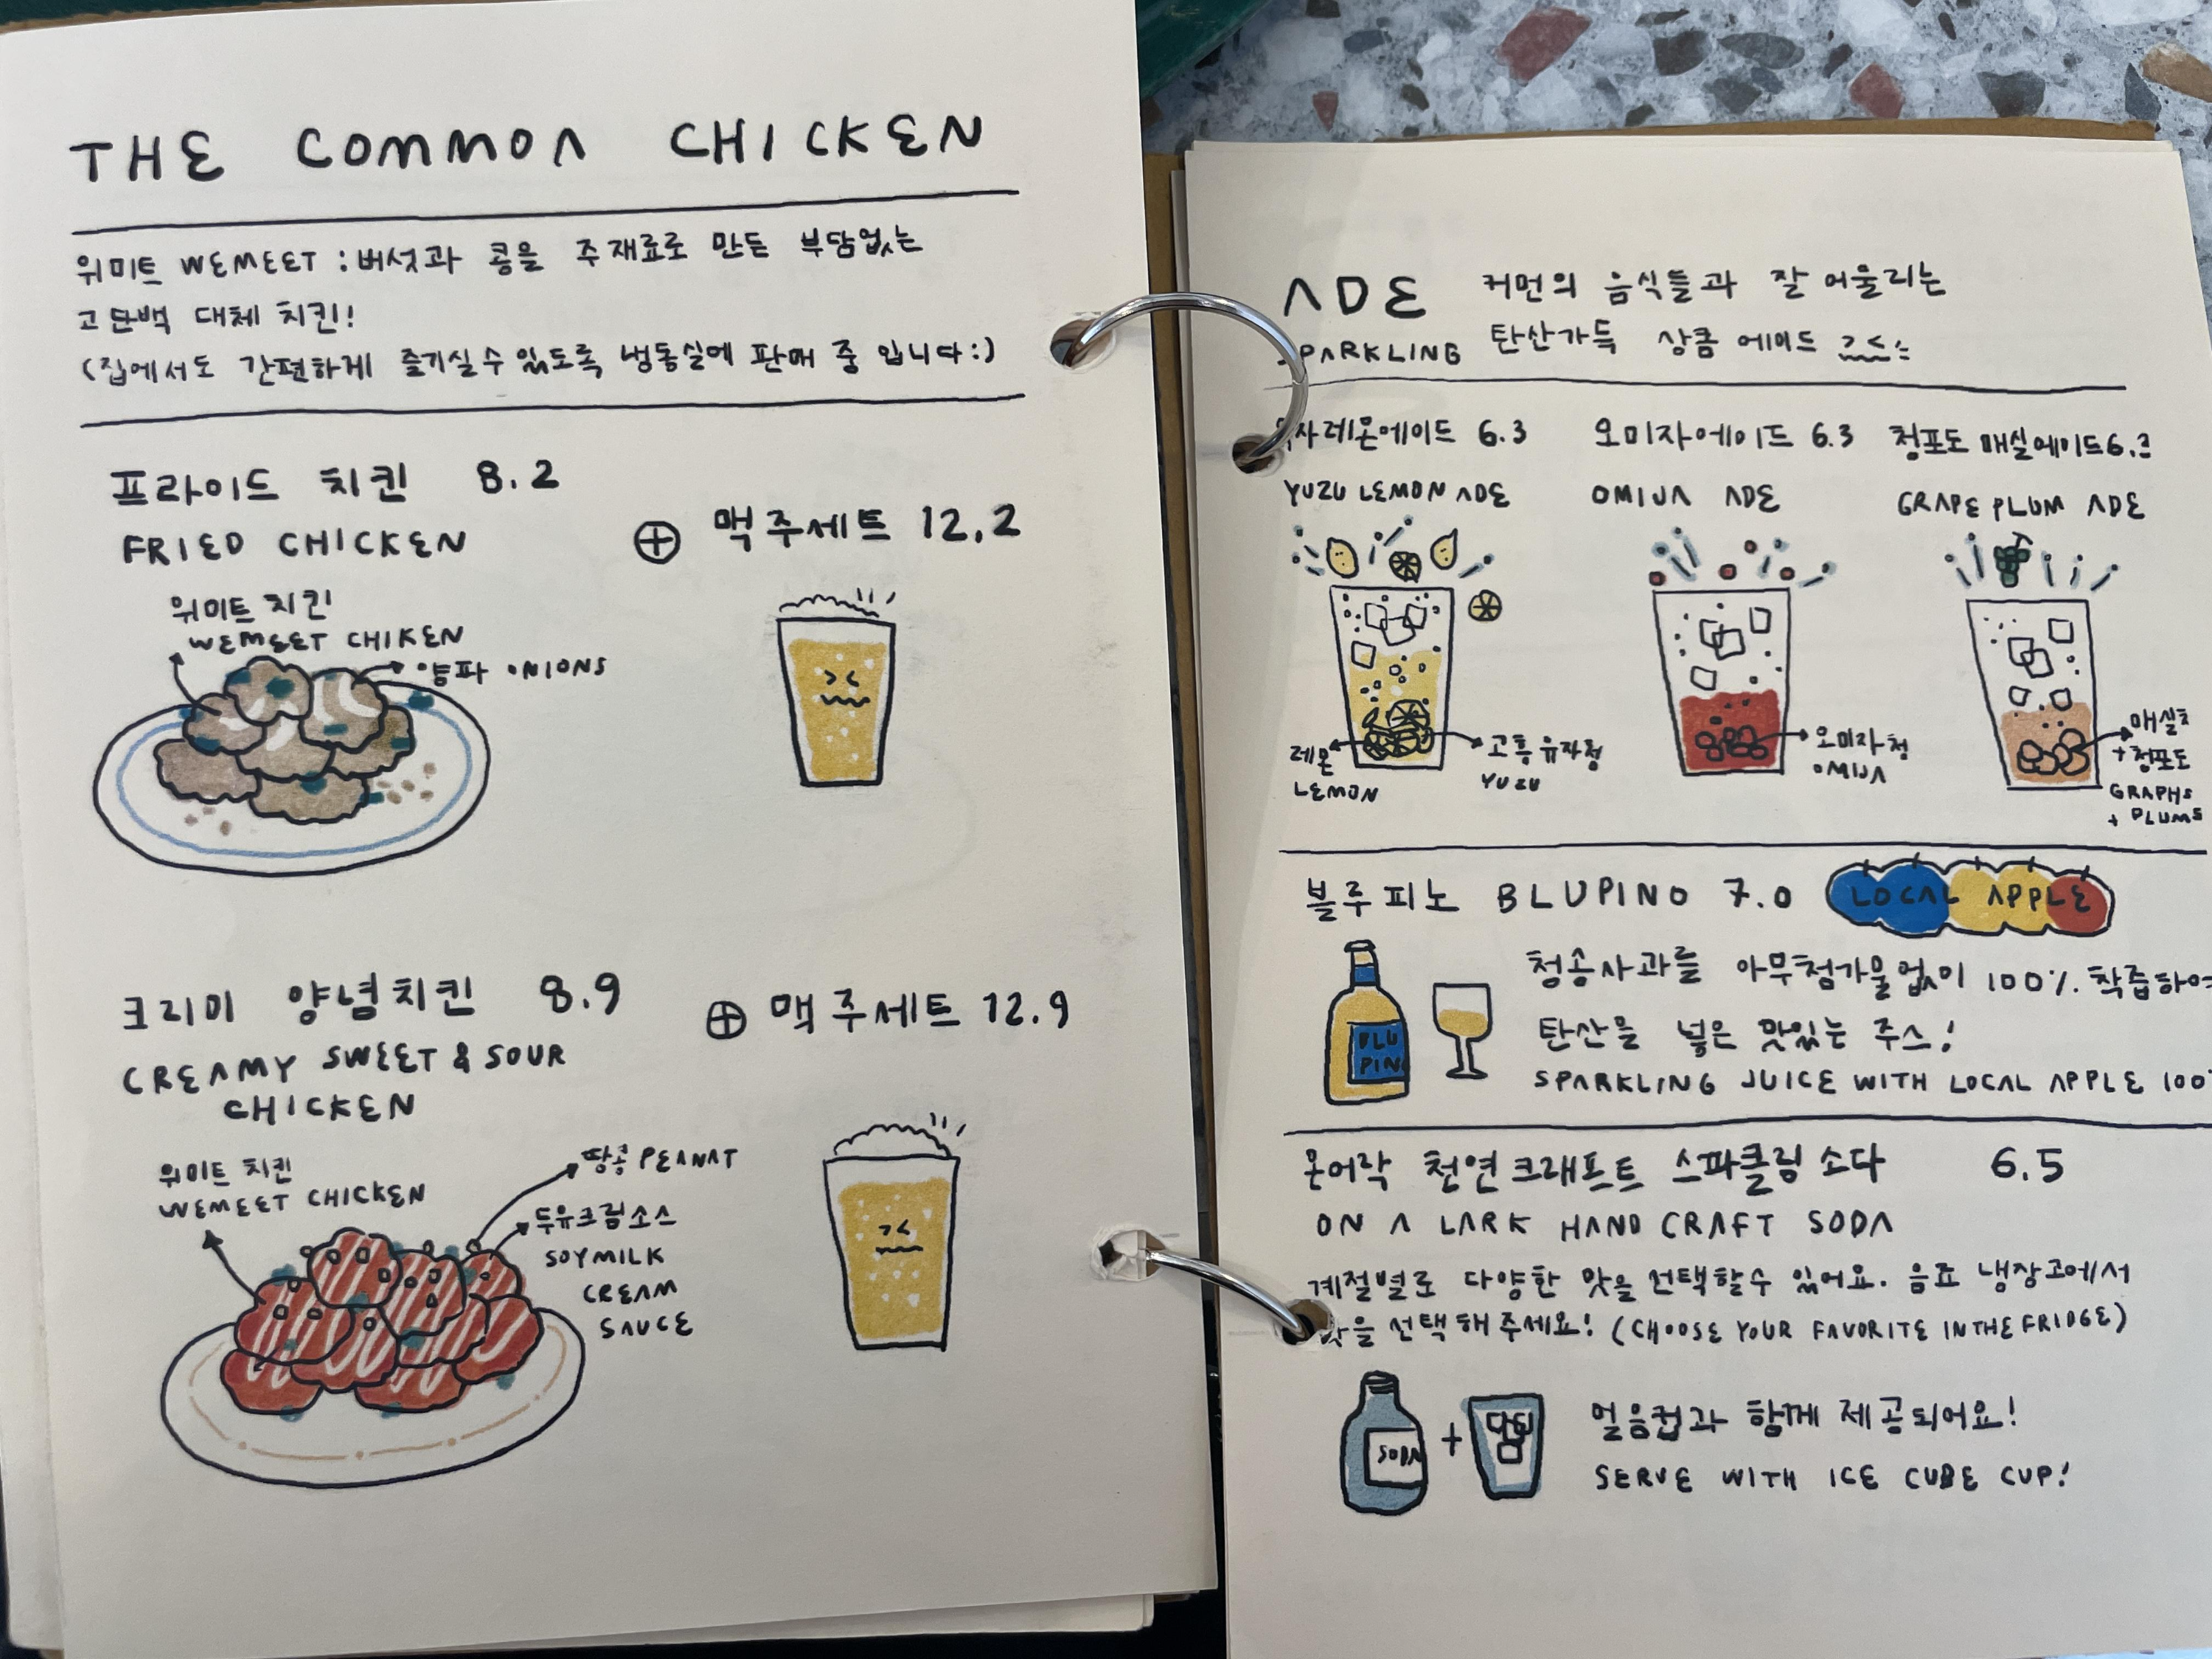 THE COMMON CHICKEN
위미트 WEMEET : 버섯과 콩을 주재료로 만든 부담없는
고단백 대체 치킨!
(집에서도 간편하게 즐기실수있도록 냉동실에 판매 중 입니다:)
프라이드 치킨 8.2
FRIED CHICKEN
⊕ 맥주세트 12.2
위미트 치킨
WEMEET CHIKEN
양파 ONIONS
크리미 양념치킨 8.9
CREAMY SWEET & SOUR
CHICKEN
⊕ 맥주세트 12.9
위미트 치킨
WEMEET CHICKEN
땅콩 PEANAT
두유크림소스
SOYMILK
CREAM
SAUCE
ADE 커먼의 음식들과 잘 어울리는
SPARKLING 탄산가득 상큼 에이드
레몬에이드 6.3
YUZU LEMON ADE
오미자에이드 6.3
OMIJA ADE
청포도 매실에이드 6.3
GRAPE PLUM ADE
레몬
LEMON
고흥유자청
YUZU
오미자청
OMIJA
매실청
+청포도
GRAPHS
+ PLUMS
블루피노 BLUPINO 7.0 LOCAL APPLE
청송사과를 아무첨가물없이 100% 착즙하여
탄산을 넣은 맛있는 주스!
SPARKLING JUICE WITH LOCAL APPLE 100
BLU
PINO
온어락 천연크래프트 스파클링 소다 6.5
ON A LARK HAND CRAFT SODA
계절별로 다양한 맛을 선택할수 있어요. 음료 냉장고에서
맛을 선택해주세요! (CHOOSE YOUR FAVORITE IN THE FRIDGE)
SODA
+
얼음컵과 함께 제공되어요!
SERVE WITH ICE CUBE CUP!